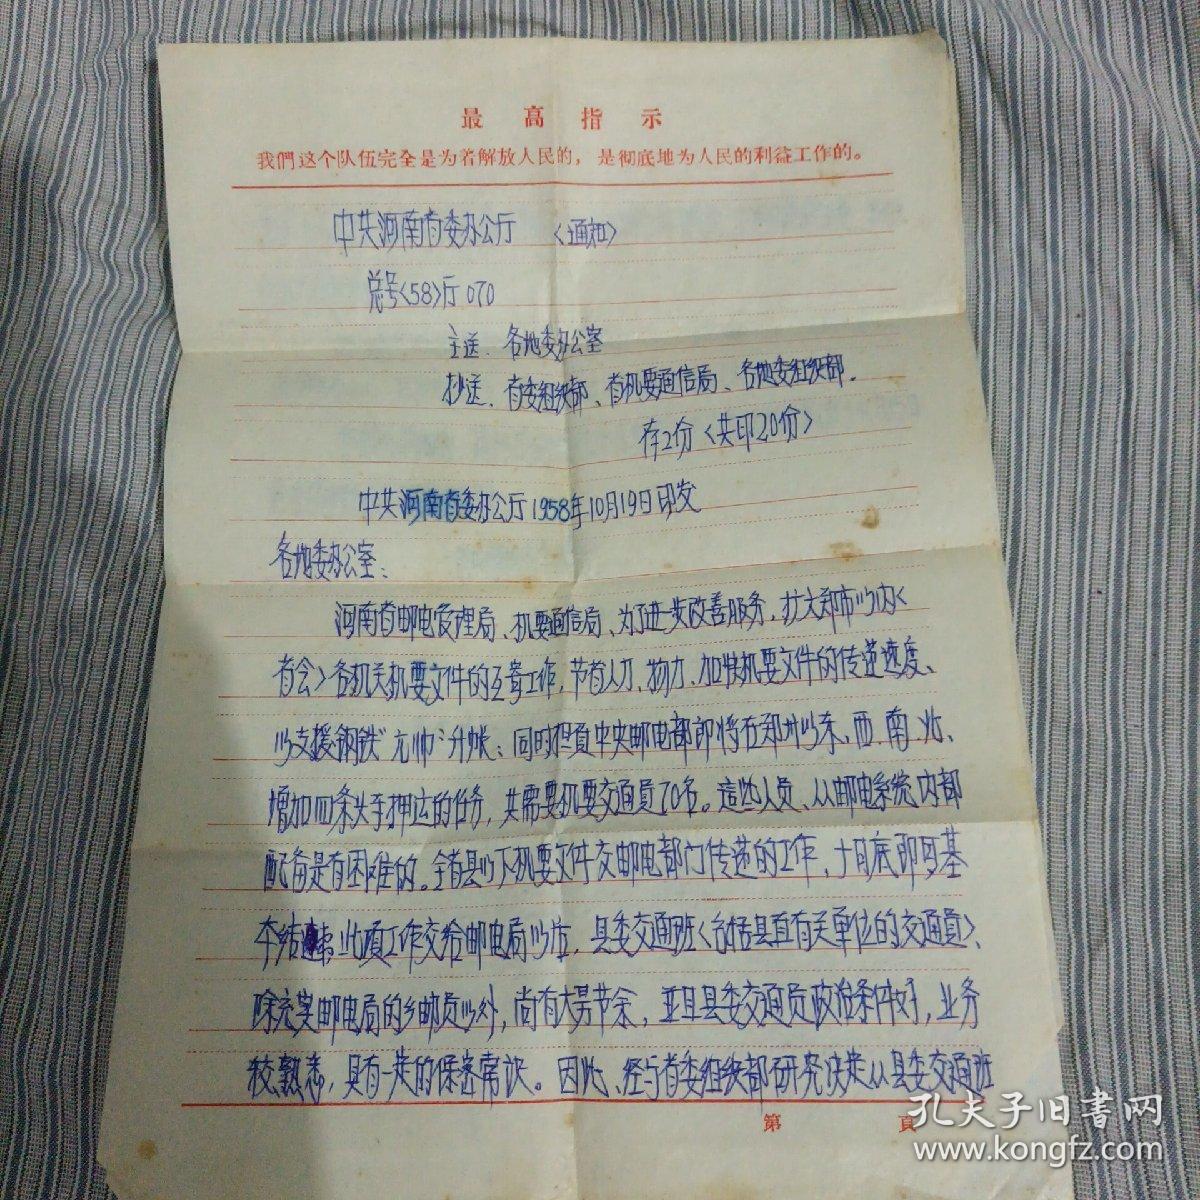 最高指示
我們这个队伍完全是为着解放人民的，是彻底地为人民的利益工作的。
中共河南省委办公厅 〈通知〉
总号〈58〉厅070
主送、各地委办公室
抄送、省委组织部、省机要通信局、各地委组织部.
存2份〈共印20份〉
中共河南省委办公厅1958年10月19日印发
各地委办公室:
河南省邮电管理局、机要通信局、为了进一步改善服务,扩大郑市以内〈
省会〉各机关机要文件的工作,节省人力、物力、加快机要文件的传递速度、
以支援钢铁“元帅”升帐;同时担负中央邮电部即将在郑州以东、西、南、北、
增加四条火车押运的任务,共需要机要交通員70名。這些人员、从邮电系统内部
配备是有困难的。全省县以下机要文件交邮电部门传递的工作,十月底即可基
本结束.此项工作交给邮电局以后,县委交通班〈包括县直有关单位的交通員〉、
除充实邮电局的乡邮员以外,尚有大量节余,並且县委交通员政治条件好,业务
较熟悉,具有一定的保密常识。因此、经与省委组织部研究决定从县委交通班
第 頁
孔夫子旧书网
www.kongfz.com